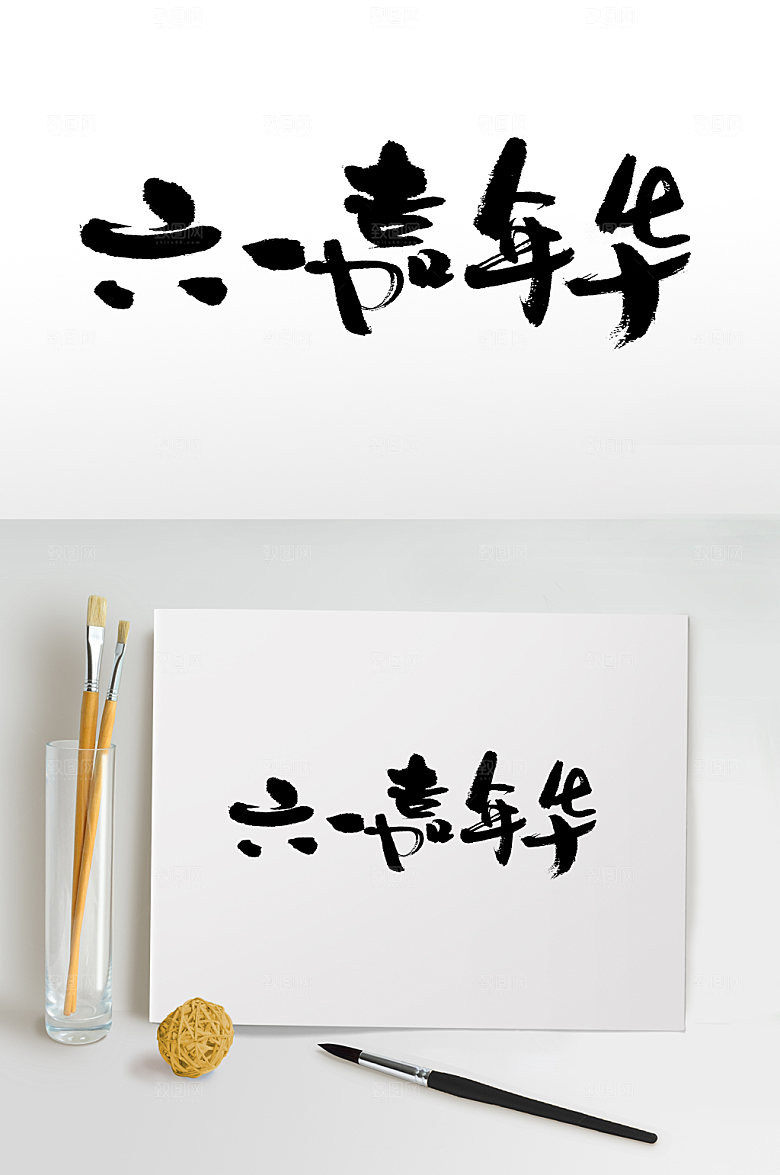 六一嘉年华
六一嘉年华